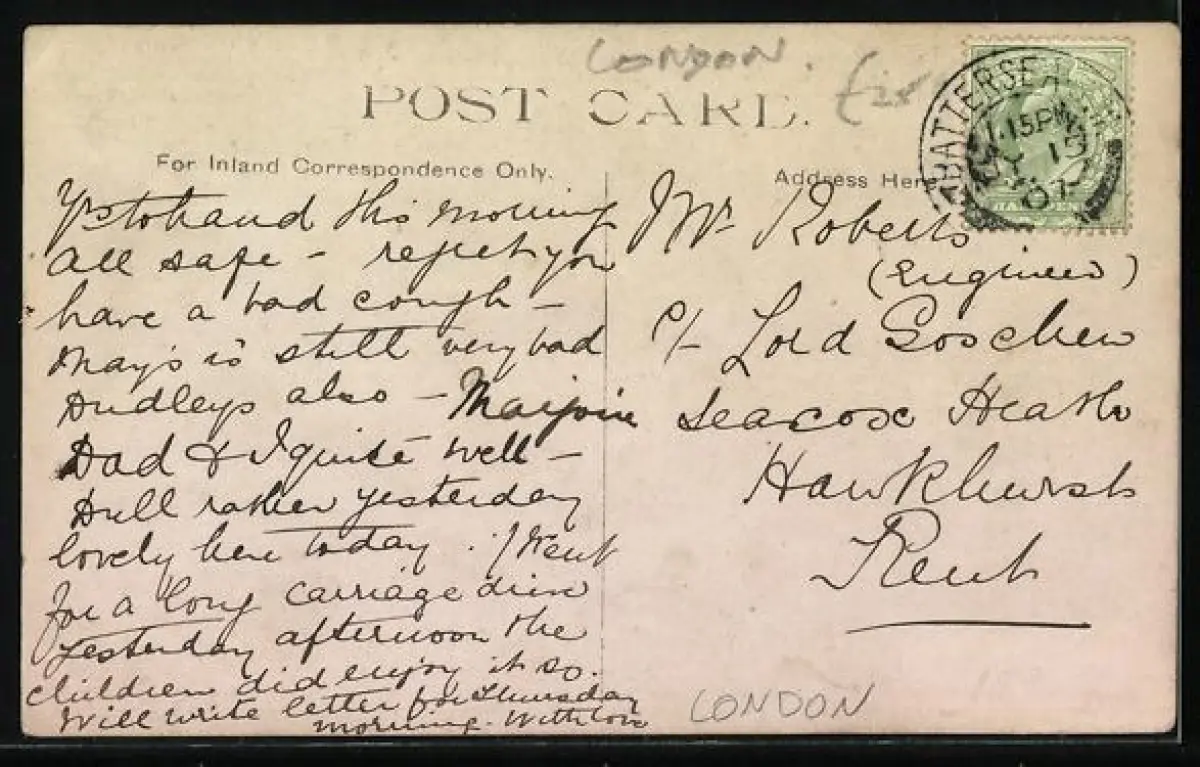 LONDON.
£28
POST CARD.
For Inland Correspondence Only.
Address Here
BATTERSEA
.15PM
07
HALFPENNY
Yrs to hand this morning
all safe - regret you
have a bad cough -
May's is still very bad
Dudleys also - Marjorie
Dad & I quite well -
Dull rather yesterday
lovely here today. I went
for a long carriage drive
yesterday afternoon the
children did enjoy it so.
Will write letter for Thursday
morning. With love
Mr Roberts
(Engineer)
c/- Lord Goschen
Seacox Heath
Hawkhurst
Kent
LONDON